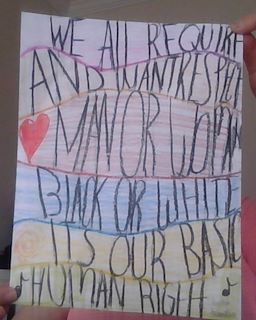 WE All REQUIRE
AND WANT RESPECT
MAN OR WOMAN
BlACK OR WHITE
ITS OUR BASIC
HUMAN RIGHT